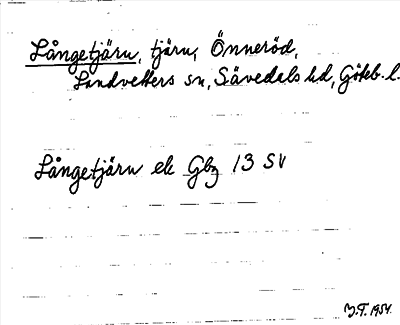 Långetjärn, tjärn, Önneröd,
Landvetters sn, Sävedals hd, Göteb. l.
Långetjärn ek Gbg 13 SV
Y.F. 1954